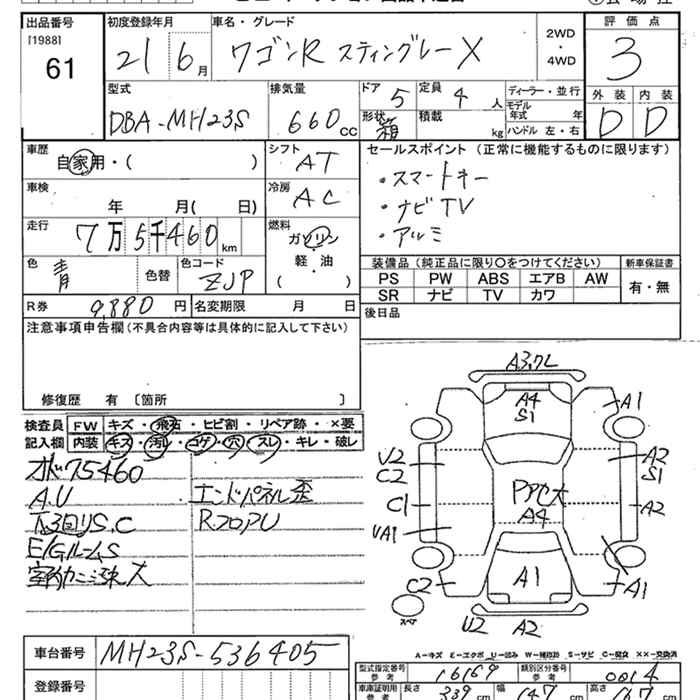 出品番号 初度登録年月 車名・グレード 評価点
[1988] 61 21 6月 ワゴンR スティングレー X 2WD・4WD 3
型式 排気量 ドア 5 定員 4人 ディーラー・並行 外装 内装
DBA-MH23S 660cc 形状 箱 積載 kg モデル年式 年 ハンドル 左・右 D D
車歴 自家用・( ) シフト AT セールスポイント (正常に機能するものに限ります)
・スマートキー
車検 年 月( 日) 冷房 AC ・ナビTV
走行 7万5千460km 燃料 ガソリン 軽・油 ( ) ・アルミ
色 青 色替 色コード ZJP 装備品 (純正品に限り〇をつけてください) 新車保証書
PS PW ABS エアB AW 有・無
SR ナビ TV カワ
R券 9,880円 名変期限 月 日 後日品
注意事項申告欄(不具合内容等は具体的に記入して下さい)
修復歴 有 〔箇所 〕
検査員 FW キズ・飛石・ヒビ割・リペア跡・×要
記入欄 内装 キズ・汚れ・コゲ・穴・スレ・キレ・破レ
75460
A.U エンドパネル歪
下回りS.C
E/GルームS
A3 A4 S1 A1
U2 C2 A2 S1
C1 A2
A4
C2 A1 A1
スペア U2 A2
A=キズ E=エクボ U=凹み W=補修跡 S=サビ C=腐食 ××=交換済
車台番号 MH23S-536405
登録番号
型式指定番号 参考 16169 類別区分番号 参考 0014
車庫証明用 参考 長さ 339cm 幅 147cm 高さ cm